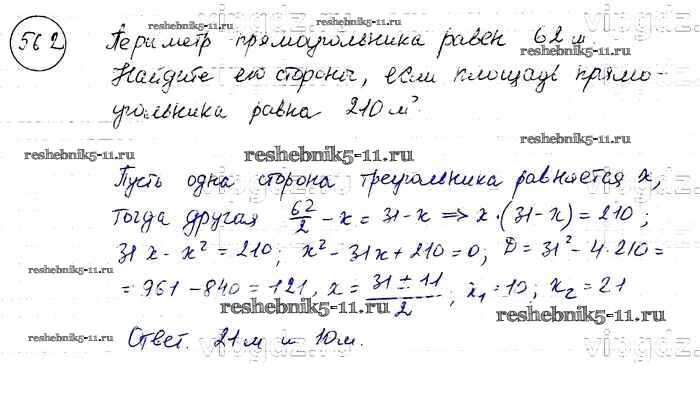 562 Периметр прямоугольника равен 62 м.
Найдите его стороны, если площадь прямо-
угольника равна 210 м².
reshebnik5-11.ru
reshebnik5-11.ru
reshebnik5-11.ru
reshebnik5-11.ru
Пусть одна сторона треугольника равняется x,
тогда другая 62/2 - x = 31 - x => x·(31-x) = 210;
31x - x² = 210; x² - 31x + 210 = 0; D = 31² - 4·210 =
= 961 - 840 = 121, x = (31 ± 11)/2; x₁ = 10; x₂ = 21
reshebnik5-11.ru
reshebnik5-11.ru
reshebnik5-11.ru
reshebnik5-11.ru
Ответ. 21 м и 10 м.
vipgdz.com